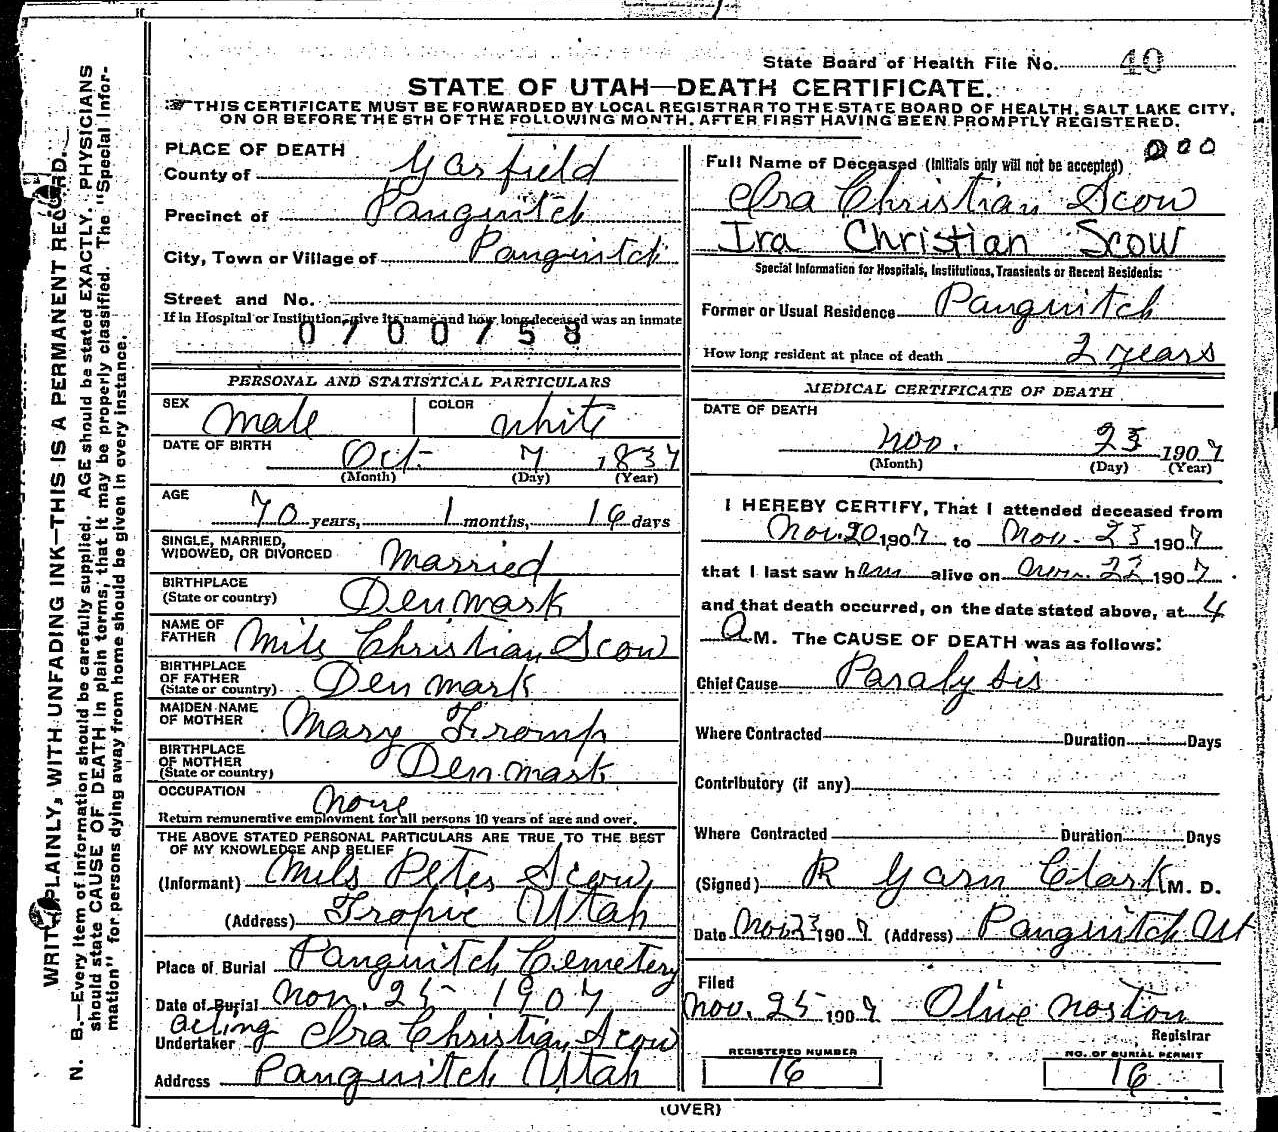 State Board of Health File No. 40
STATE OF UTAH—DEATH CERTIFICATE.
THIS CERTIFICATE MUST BE FORWARDED BY LOCAL REGISTRAR TO THE STATE BOARD OF HEALTH, SALT LAKE CITY,
ON OR BEFORE THE 5TH OF THE FOLLOWING MONTH, AFTER FIRST HAVING BEEN PROMPTLY REGISTERED.
WRITE PLAINLY, WITH UNFADING INK—THIS IS A PERMANENT RECORD.
N. B.—Every item of information should be carefully supplied. AGE should be stated EXACTLY. PHYSICIANS
should state CAUSE OF DEATH in plain terms, that it may be properly classified. The "Special Infor-
mation" for persons dying away from home should be given in every instance.
PLACE OF DEATH
County of Garfield
Precinct of Panguitch
City, Town or Village of Panguitch
Street and No.
If in Hospital or Institution, give its name and how long deceased was an inmate
0700758
PERSONAL AND STATISTICAL PARTICULARS
SEX Male COLOR White
DATE OF BIRTH Oct 7 1837
(Month) (Day) (Year)
AGE 70 years, 1 months, 16 days
SINGLE, MARRIED,
WIDOWED, OR DIVORCED Married
BIRTHPLACE
(State or country) Denmark
NAME OF
FATHER Nils Christian Scow
BIRTHPLACE
OF FATHER
(State or country) Denmark
MAIDEN NAME
OF MOTHER Mary Fromp
BIRTHPLACE
OF MOTHER
(State or country) Denmark
OCCUPATION None
Return remunerative employment for all persons 10 years of age and over.
THE ABOVE STATED PERSONAL PARTICULARS ARE TRUE TO THE BEST
OF MY KNOWLEDGE AND BELIEF
(Informant) Nils Peter Scow
(Address) Tropic Utah
Place of Burial Panguitch Cemetery
Date of Burial Nov. 25 1907
acting
Undertaker Ira Christian Scow
Address Panguitch Utah
000
Full Name of Deceased (Initials only will not be accepted)
Ira Christian Scow
Ira Christian Scow
Special Information for Hospitals, Institutions, Transients or Recent Residents:
Former or Usual Residence Panguitch
How long resident at place of death 2 years
MEDICAL CERTIFICATE OF DEATH
DATE OF DEATH
Nov. 23 1907
(Month) (Day) (Year)
I HEREBY CERTIFY, That I attended deceased from
Nov. 20 1907 to Nov. 23 1907
that I last saw him alive on Nov. 22 1907.
and that death occurred, on the date stated above, at 4
A M. The CAUSE OF DEATH was as follows:
Chief Cause Paralysis
Where Contracted Duration Days
Contributory (if any)
Where Contracted Duration Days
(Signed) R Garn Clark M. D.
Date Nov 23 1907 (Address) Panguitch Ut
Filed
Nov. 25 1907 Olive Norton
Registrar
REGISTERED NUMBER
16
NO. OF BURIAL PERMIT
16
(OVER)